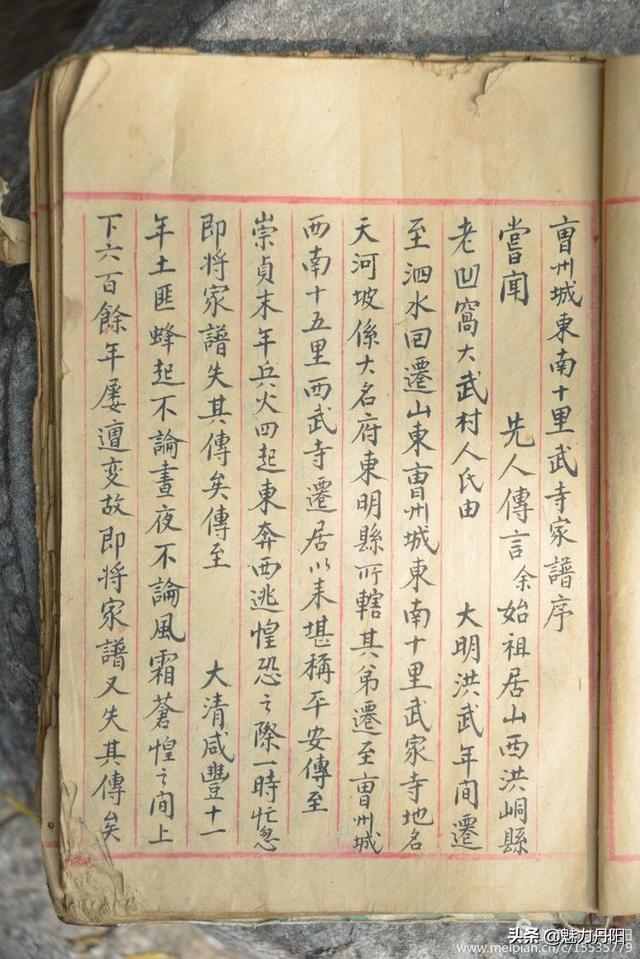 曹州城東南十里武寺家譜序
嘗聞 先人傳言余始祖居山西洪峒縣
老凹窩大武村人氏由 大明洪武年間遷
至泗水回遷山東曹州城東南十里武家寺地名
天河坡係大名府東明縣所轄其弟遷至曹州城
西南十五里西武寺遷居以来堪稱平安傳至
崇貞末年兵火四起東奔西逃惶恐之際一時忙忽
即將家譜失其傳矣傳至 大清咸豐十一
年土匪蜂起不論晝夜不論風霜蒼惶之间上
下六百餘年屡遭変故即将家譜又失其傳矣
头条 @魅力丹阳
www.meipian.cn/c/15535779